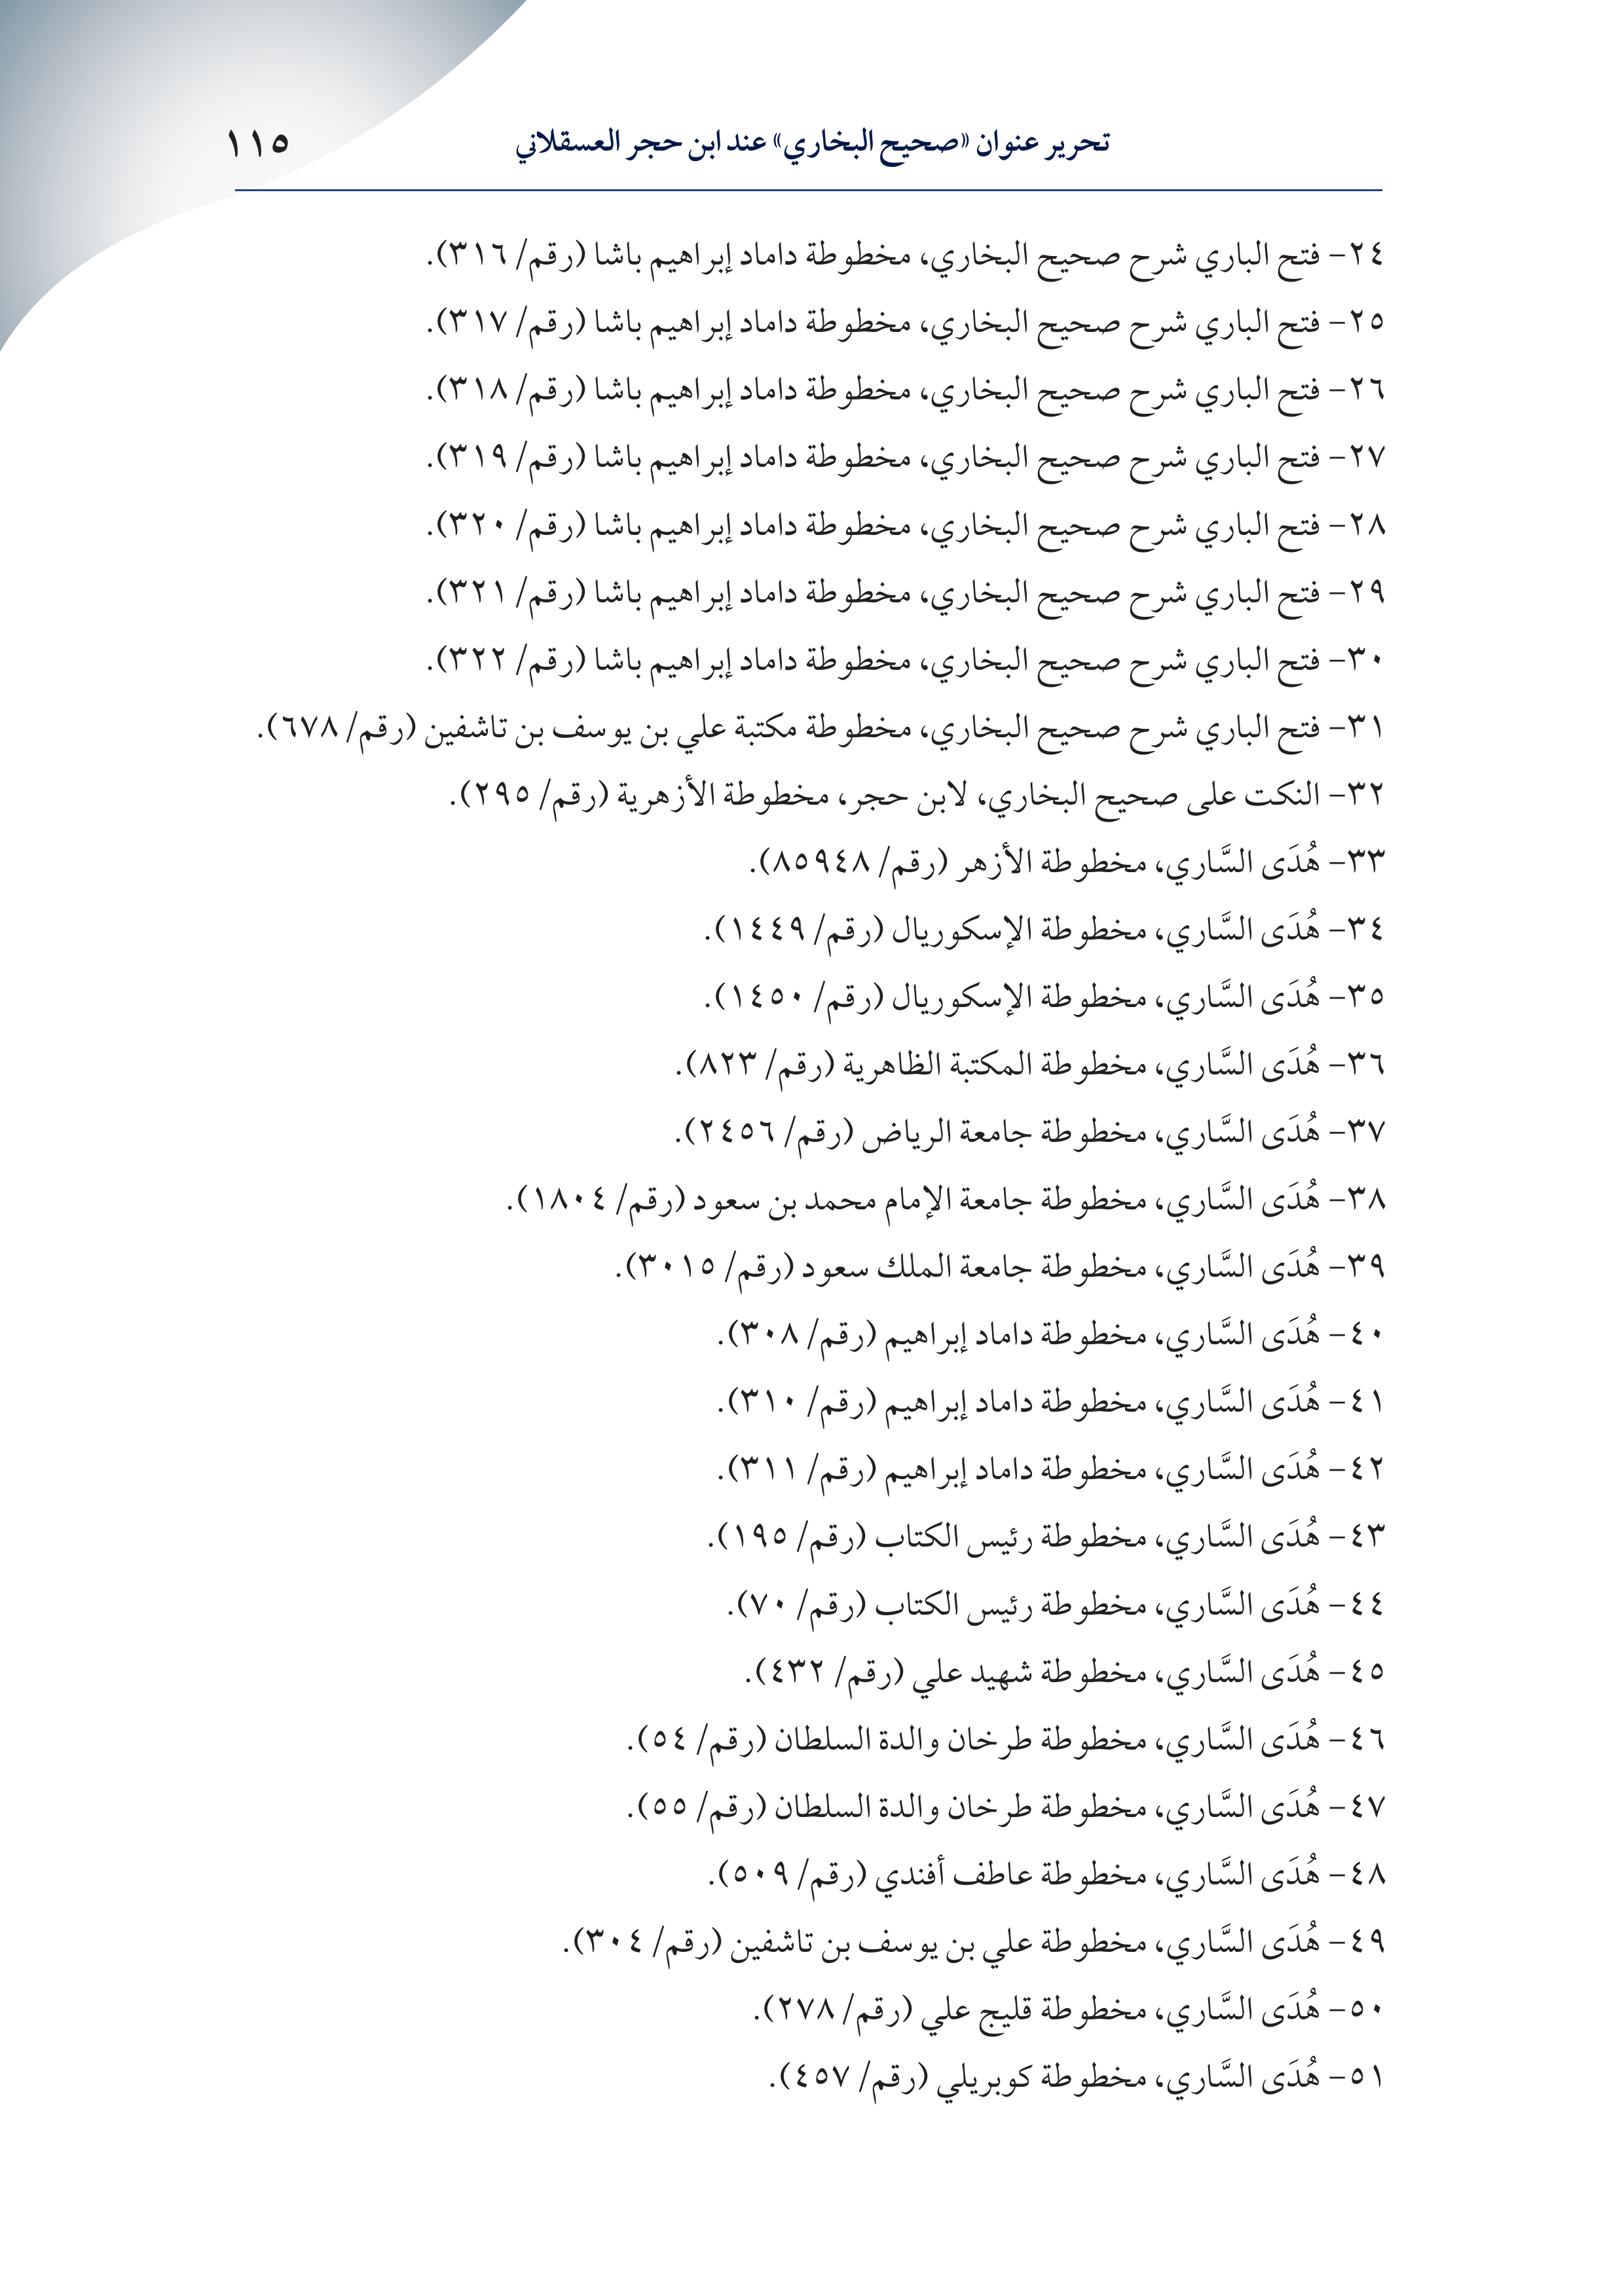 تحرير عنوان «صحيح البخاري» عند ابن حجر العسقلاني
١١٥
٢٤- فتح الباري شرح صحيح البخاري، مخطوطة داماد إبراهيم باشا (رقم/ ٣١٦).
٢٥- فتح الباري شرح صحيح البخاري، مخطوطة داماد إبراهيم باشا (رقم/ ٣١٧).
٢٦- فتح الباري شرح صحيح البخاري، مخطوطة داماد إبراهيم باشا (رقم/ ٣١٨).
٢٧- فتح الباري شرح صحيح البخاري، مخطوطة داماد إبراهيم باشا (رقم/ ٣١٩).
٢٨- فتح الباري شرح صحيح البخاري، مخطوطة داماد إبراهيم باشا (رقم/ ٣٢٠).
٢٩- فتح الباري شرح صحيح البخاري، مخطوطة داماد إبراهيم باشا (رقم/ ٣٢١).
٣٠- فتح الباري شرح صحيح البخاري، مخطوطة داماد إبراهيم باشا (رقم/ ٣٢٢).
٣١- فتح الباري شرح صحيح البخاري، مخطوطة مكتبة علي بن يوسف بن تاشفين (رقم/ ٦٧٨).
٣٢- النكت على صحيح البخاري، لابن حجر، مخطوطة الأزهرية (رقم/ ٢٩٥).
٣٣- هُدَى السَّاري، مخطوطة الأزهر (رقم/ ٨٥٩٤٨).
٣٤- هُدَى السَّاري، مخطوطة الإسكوريال (رقم/ ١٤٤٩).
٣٥- هُدَى السَّاري، مخطوطة الإسكوريال (رقم/ ١٤٥٠).
٣٦- هُدَى السَّاري، مخطوطة المكتبة الظاهرية (رقم/ ٨٢٣).
٣٧- هُدَى السَّاري، مخطوطة جامعة الرياض (رقم/ ٢٤٥٦).
٣٨- هُدَى السَّاري، مخطوطة جامعة الإمام محمد بن سعود (رقم/ ١٨٠٤).
٣٩- هُدَى السَّاري، مخطوطة جامعة الملك سعود (رقم/ ٣٠١٥).
٤٠- هُدَى السَّاري، مخطوطة داماد إبراهيم (رقم/ ٣٠٨).
٤١- هُدَى السَّاري، مخطوطة داماد إبراهيم (رقم/ ٣١٠).
٤٢- هُدَى السَّاري، مخطوطة داماد إبراهيم (رقم/ ٣١١).
٤٣- هُدَى السَّاري، مخطوطة رئيس الكتاب (رقم/ ١٩٥).
٤٤- هُدَى السَّاري، مخطوطة رئيس الكتاب (رقم/ ٧٠).
٤٥- هُدَى السَّاري، مخطوطة شهيد علي (رقم/ ٤٣٢).
٤٦- هُدَى السَّاري، مخطوطة طرخان والدة السلطان (رقم/ ٥٤).
٤٧- هُدَى السَّاري، مخطوطة طرخان والدة السلطان (رقم/ ٥٥).
٤٨- هُدَى السَّاري، مخطوطة عاطف أفندي (رقم/ ٥٠٩).
٤٩- هُدَى السَّاري، مخطوطة علي بن يوسف بن تاشفين (رقم/ ٣٠٤).
٥٠- هُدَى السَّاري، مخطوطة قليج علي (رقم/ ٢٧٨).
٥١- هُدَى السَّاري، مخطوطة كوبريلي (رقم/ ٤٥٧).